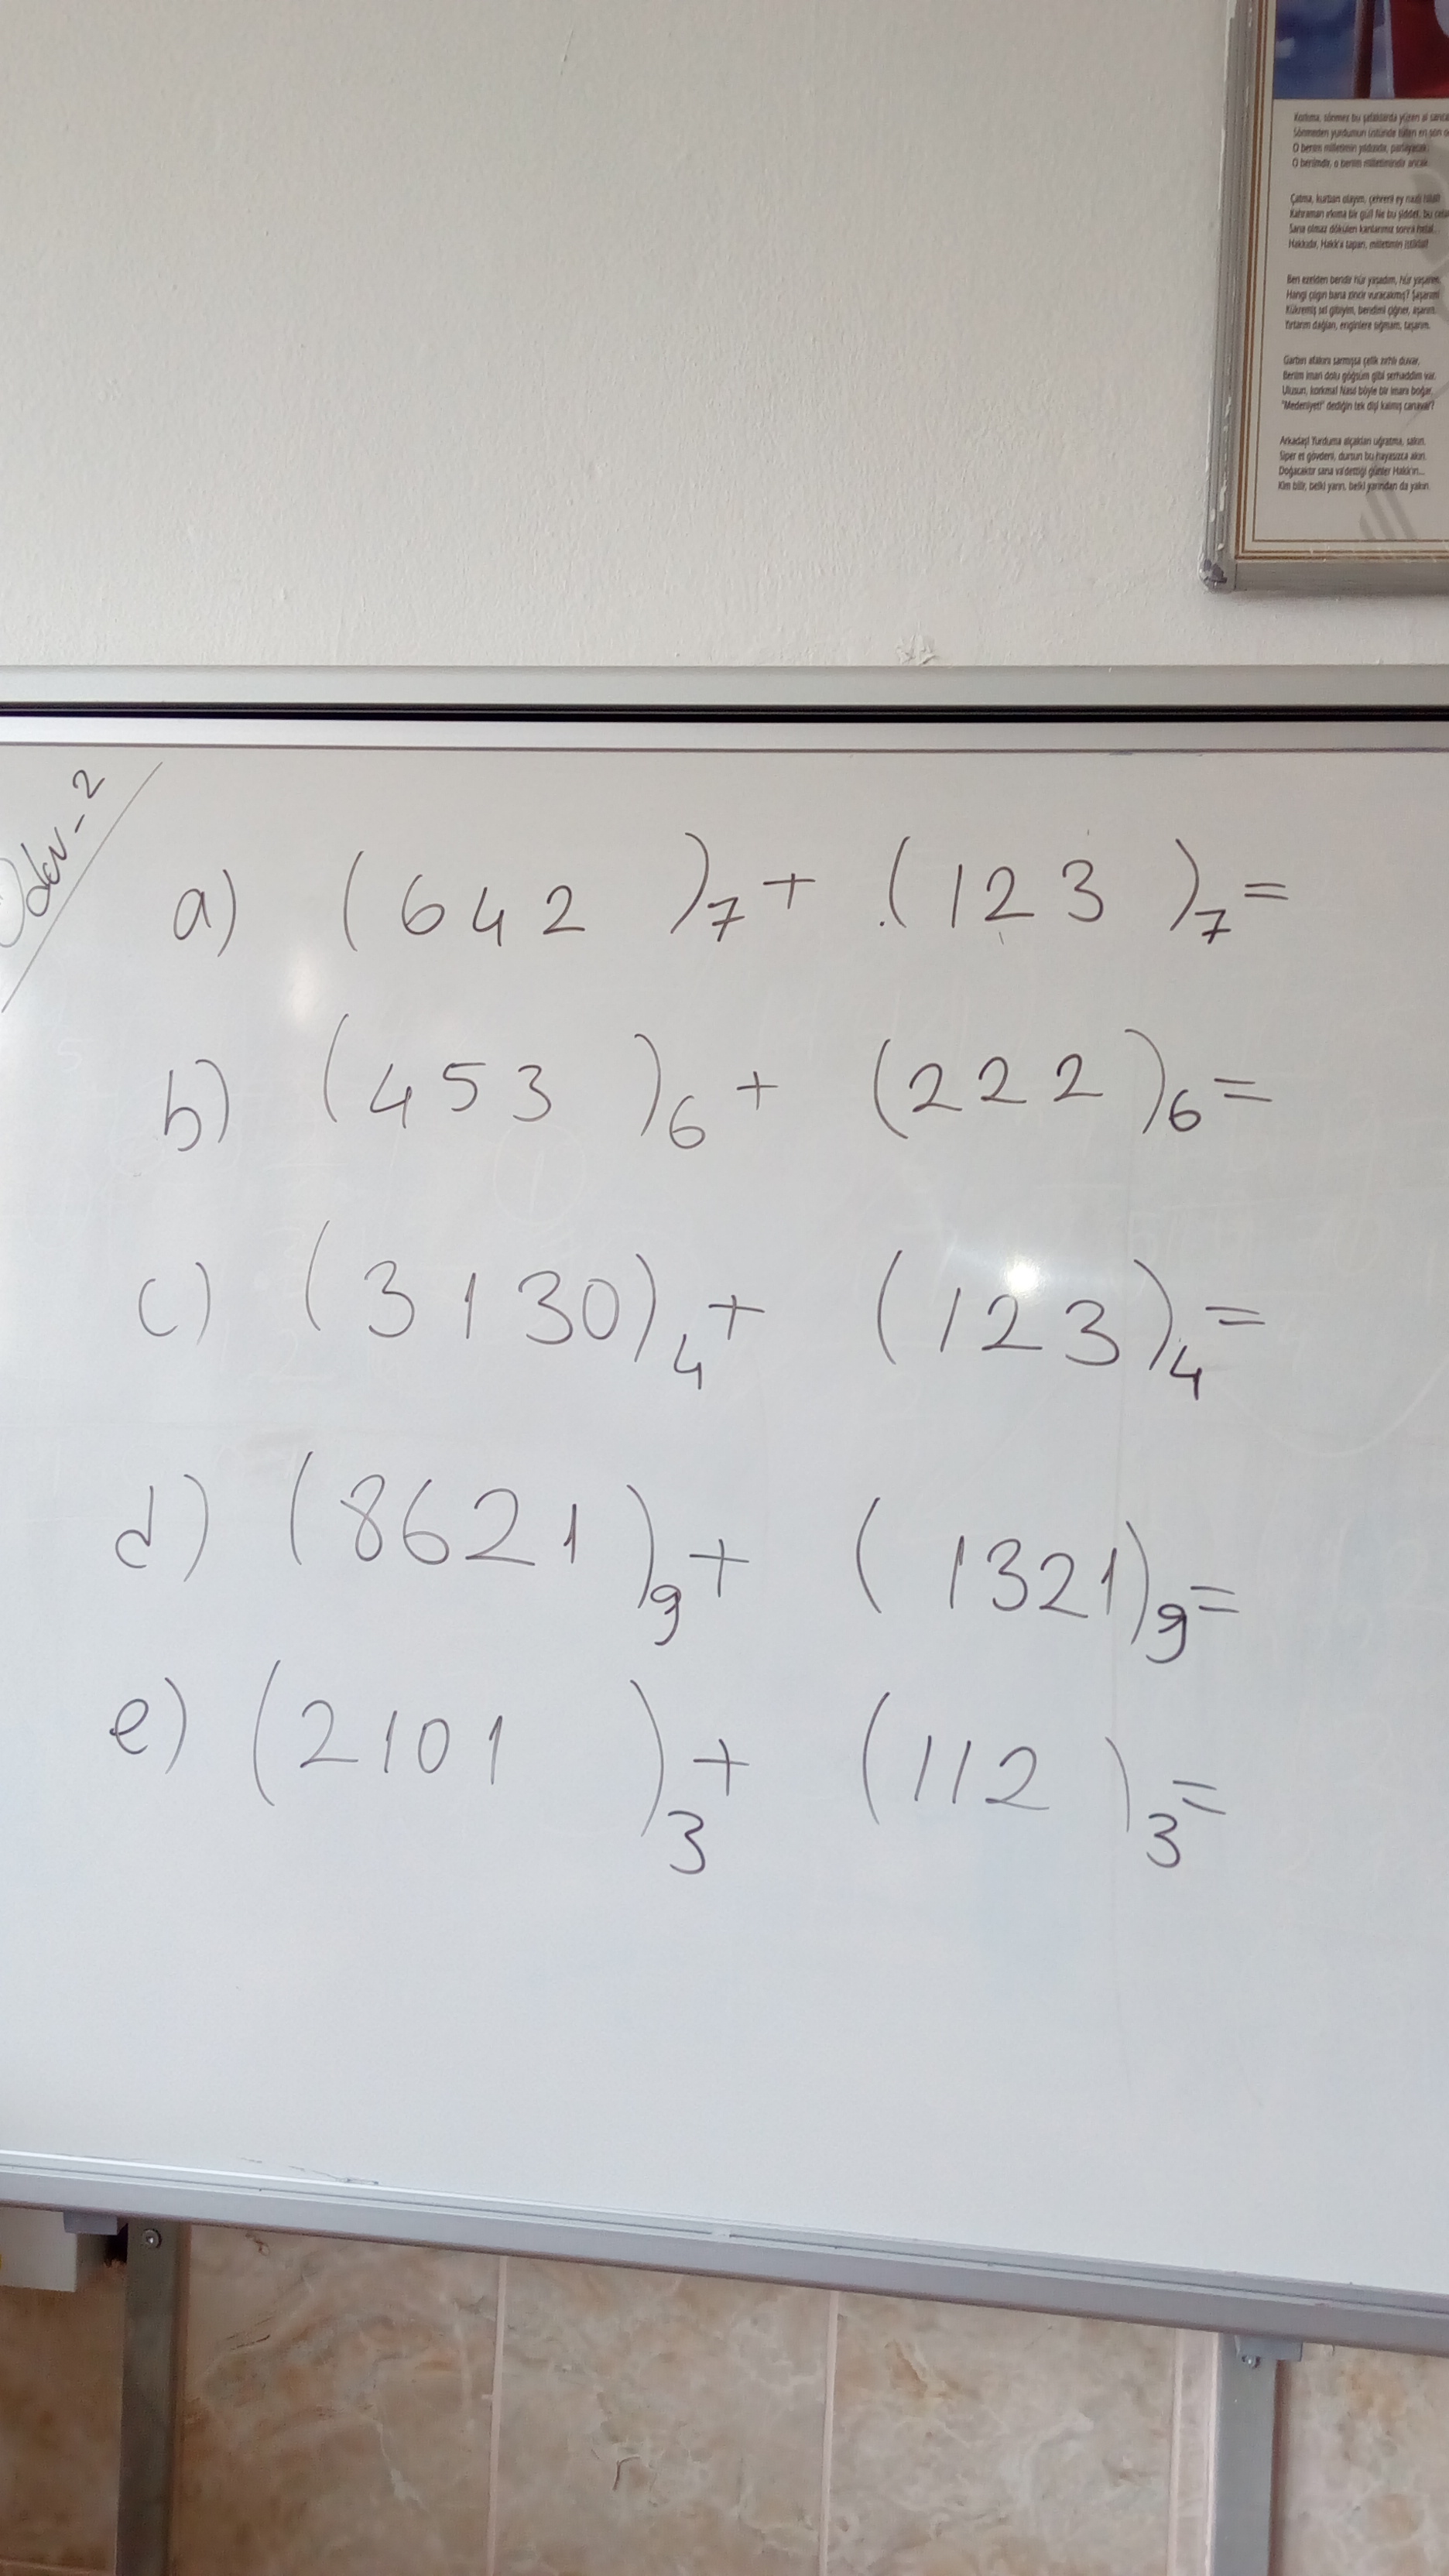 Korkma, sönmez bu şafaklarda yüzen al sancak
Sönmeden yurdumun üstünde tüten en son o
O benim milletimin yıldızıdır, parlayacak;
O benimdir, o benim milletimindir ancak.
Çatma, kurban olayım, çehreni ey nazlı hilal!
Kahraman ırkıma bir gül! Ne bu şiddet, bu celal
Sana olmaz dökülen kanlarımız sonra helal...
Hakkıdır, Hakk'a tapan, milletimin istiklal!
Ben ezelden beridir hür yaşadım, hür yaşarım.
Hangi çılgın bana zincir vuracakmış? Şaşarım!
Kükremiş sel gibiyim, bendimi çiğner, aşarım.
Yırtarım dağları, enginlere sığmam, taşarım.
Garbın afakını sarmışsa çelik zırhlı duvar,
Benim iman dolu göğsüm gibi serhaddim var.
Ulusun, korkma! Nasıl böyle bir imanı boğar,
"Medeniyet!" dediğin tek dişi kalmış canavar?
Arkadaş! Yurduma alçakları uğratma, sakın.
Siper et gövdeni, dursun bu hayasızca akın.
Doğacaktır sana va'dettiği günler Hakk'ın...
Kim bilir, belki yarın, belki yarından da yakın.
Ödev-2
a) (642)7 + (123)7 =
b) (453)6 + (222)6 =
c) (3130)4 + (123)4 =
d) (8621)9 + (1321)9 =
e) (2101)3 + (112)3 =